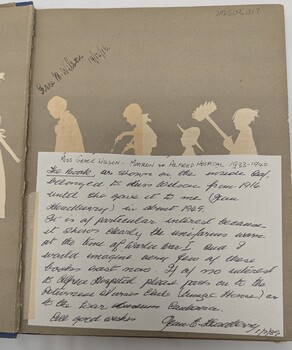 Grace M. Wilson
Miss Grace Wilson - Matron to Alfred Hospital 1933-1940
The Book, as shown on the inside leaf,
belonged to Miss Wilson from 1916
until she gave it to me (Jean
Headberry) in about 1949.
It is of particular interest because
it shows clearly the uniforms worn
at the time of World War I and I
would imagine very few of these
books exist now. If of no interest
to Alfred Hospital please pass on to the
Returned Nurses Club (Anzac House) or
to the War Museum Canberra.
All good wishes
Jean E. Headberry